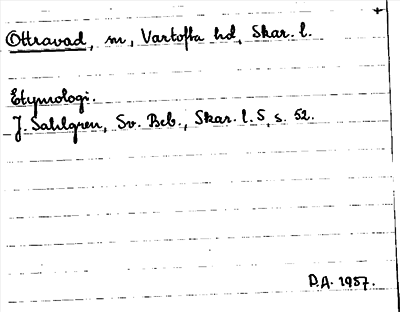 Ottravad, m, Vartofta hd, Skar. l.
Etymologi.
J. Sahlgren, Sv. Beb., Skar. l. 5, s. 52.
D.A. 1957.